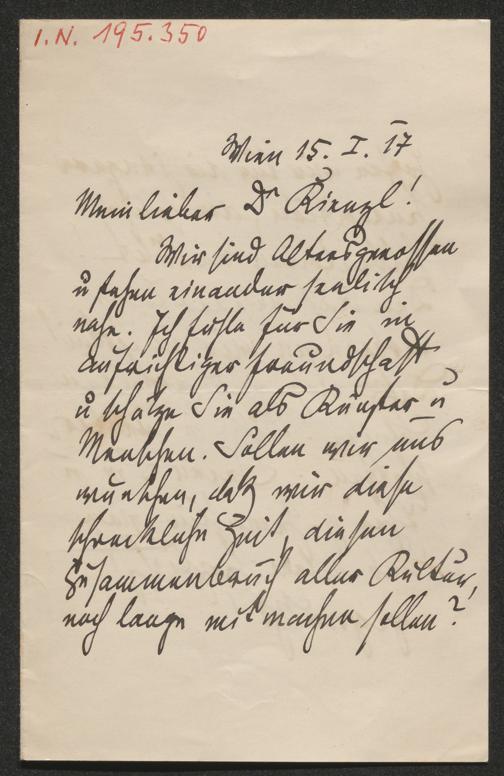 I.N. 195.350
Wien 15. I. 17
Mein lieber Dr Kienzl!
Wir sind Altersgenossen
u stehen einander seelisch
nahe. Ich fühle für Sie in
aufrichtiger Freundschaft
u schätze Sie als Künstler u
Menschen. Sollen wir uns
wünschen, daß wir diese
schreckliche Zeit, diesen
Zusammenbruch aller Kultur,
noch lange mitmachen sollen?